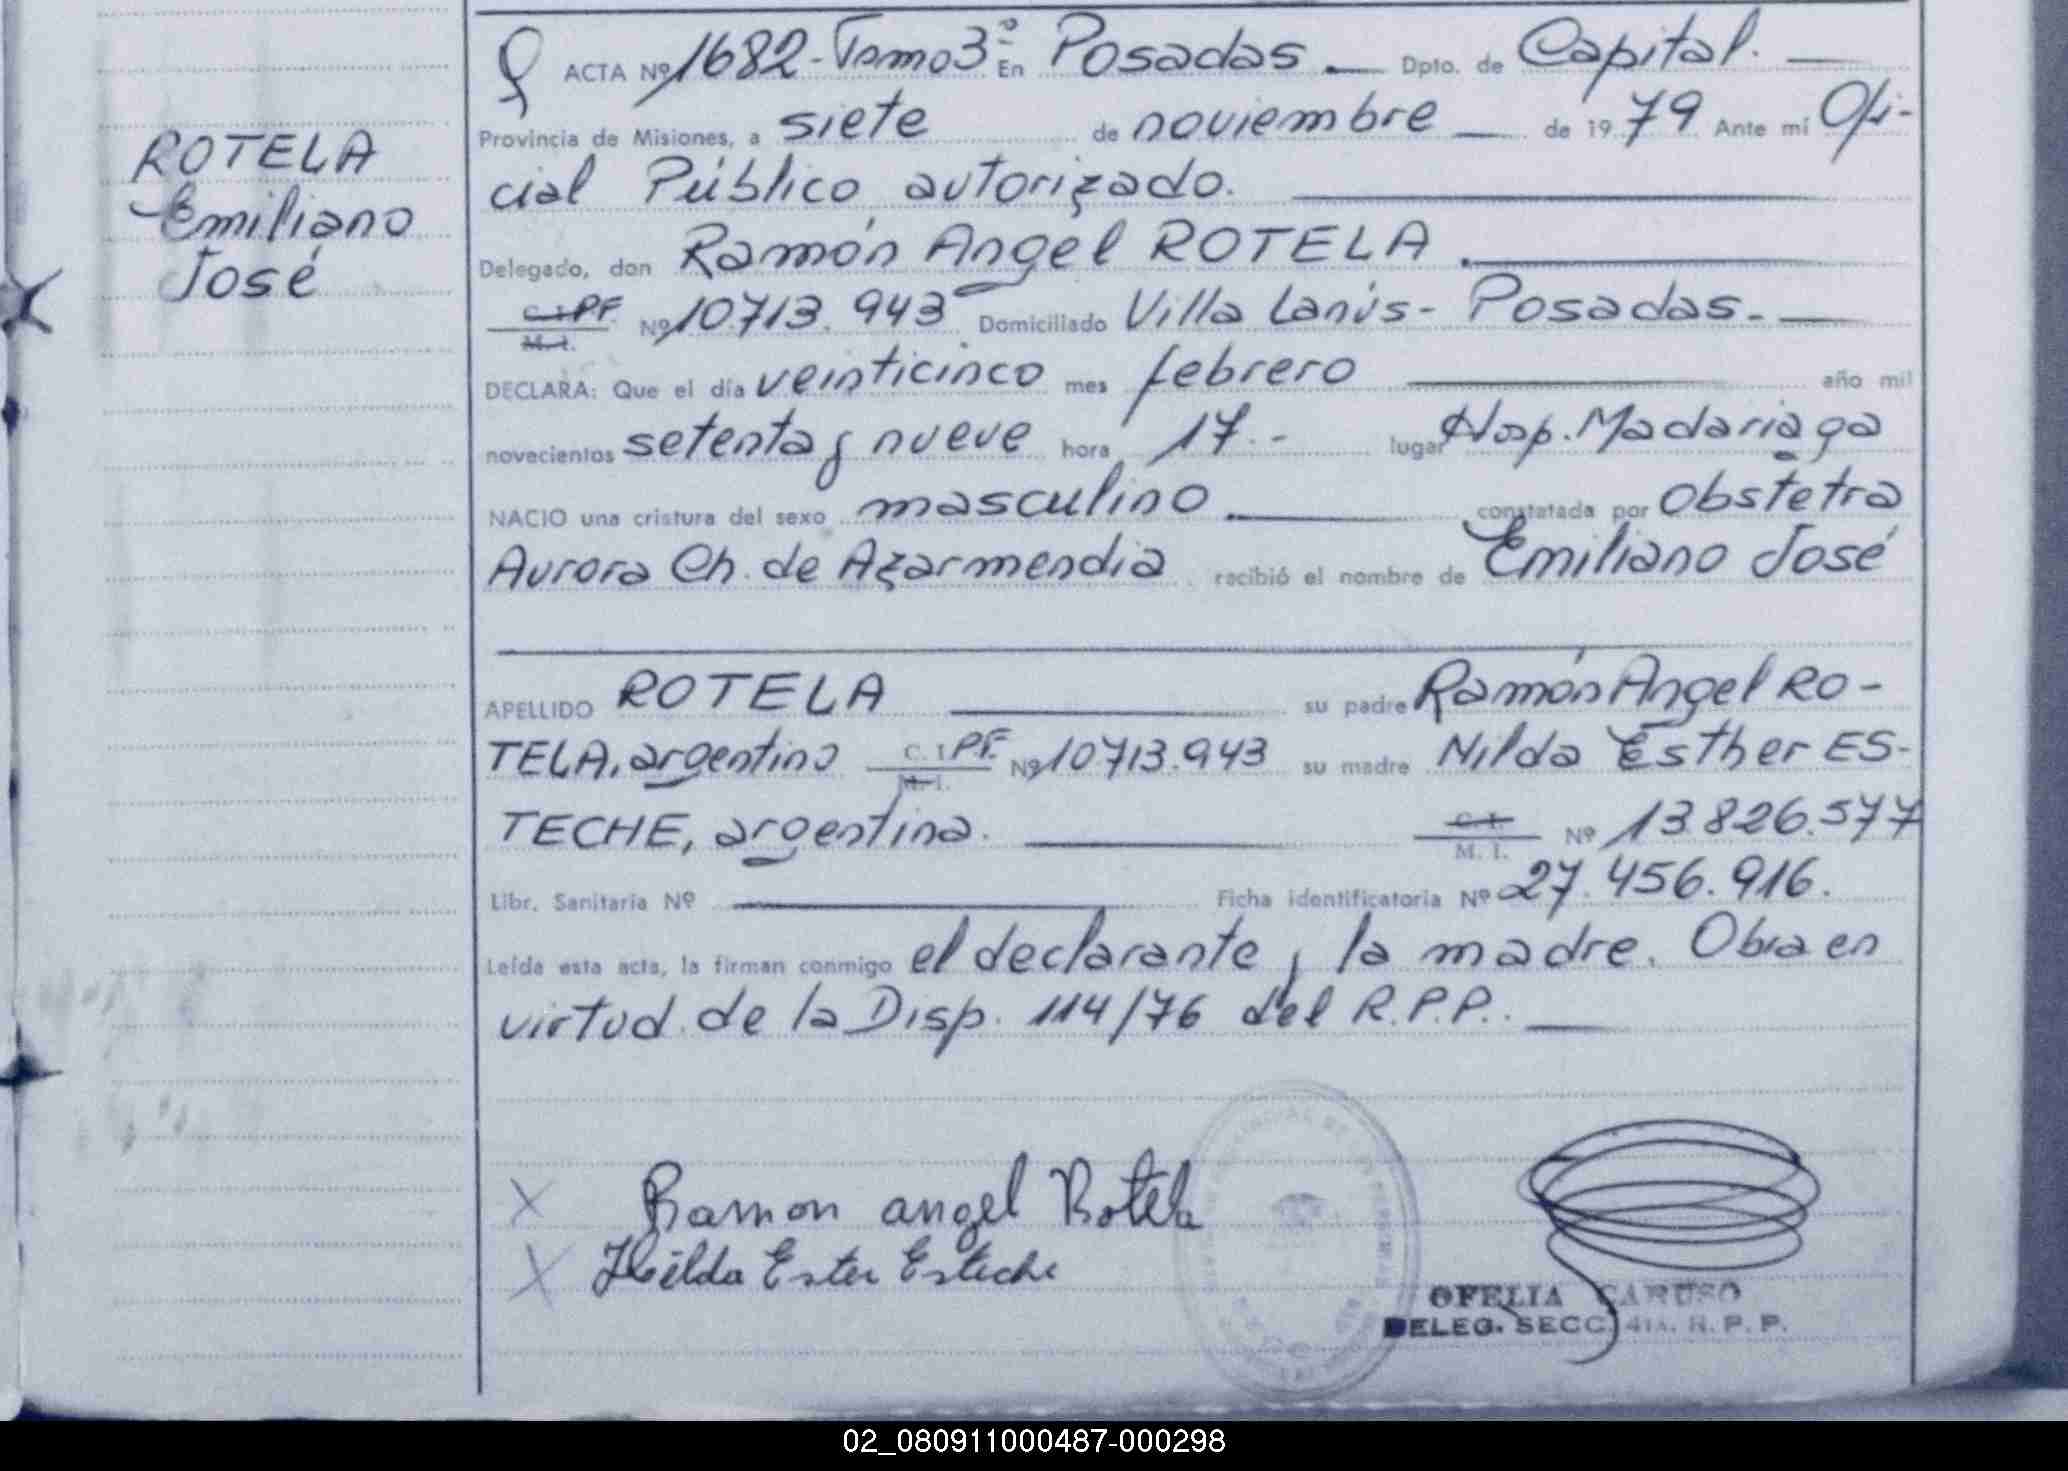 ROTELA
Emiliano
José
ACTA Nº 1682-Tomo 3º En Posadas. Dpto. de Capital.
Provincia de Misiones, a siete de noviembre de 1979 Ante mí Ofi-
cial Público autorizado.
Delegado, don Ramón Angel ROTELA.
C. I. PF. Nº 10713.943 Domiciliado Villa Lanús - Posadas.-
M. I.
DECLARA: Que el día veinticinco mes febrero año mil
novecientos setenta y nueve hora 17.- lugar Hosp. Madariaga
NACIO una criatura del sexo masculino constatada por Obstetra
Aurora Ch. de Azarmendia recibió el nombre de Emiliano José
APELLIDO ROTELA su padre Ramón Angel RO-
TELA, argentino C. I. PF. Nº 10713.943 su madre Nilda Esther ES-
M. I.
TECHE, argentina. C. I. Nº 13.826.577
M. I.
Libr. Sanitaria Nº Ficha identificatoria Nº 27.456.916.
Leída esta acta, la firman conmigo el declarante y la madre. Obra en
virtud de la Disp. 114/76 del R.P.P..
X Ramon angel Rotela
X Nilda Ester Esteche
OFELIA CARUSO
DELEG. SECC. 4ta. R. P. P.
02_080911000487-000298